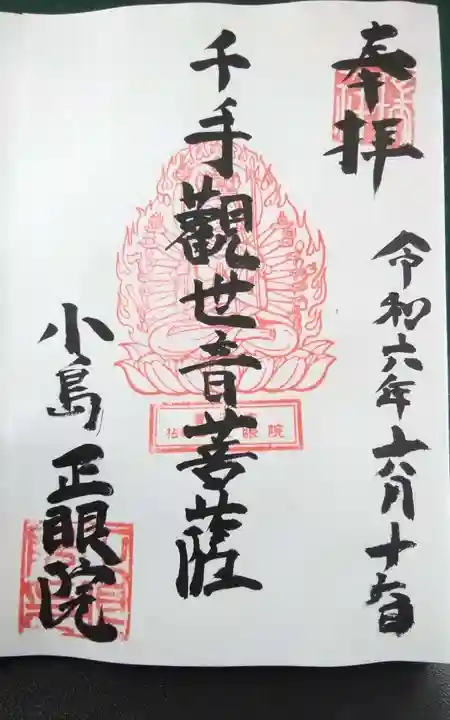 奉拝
令和六年 月十 日
千手觀世音菩薩
小島 正眼院
眼院